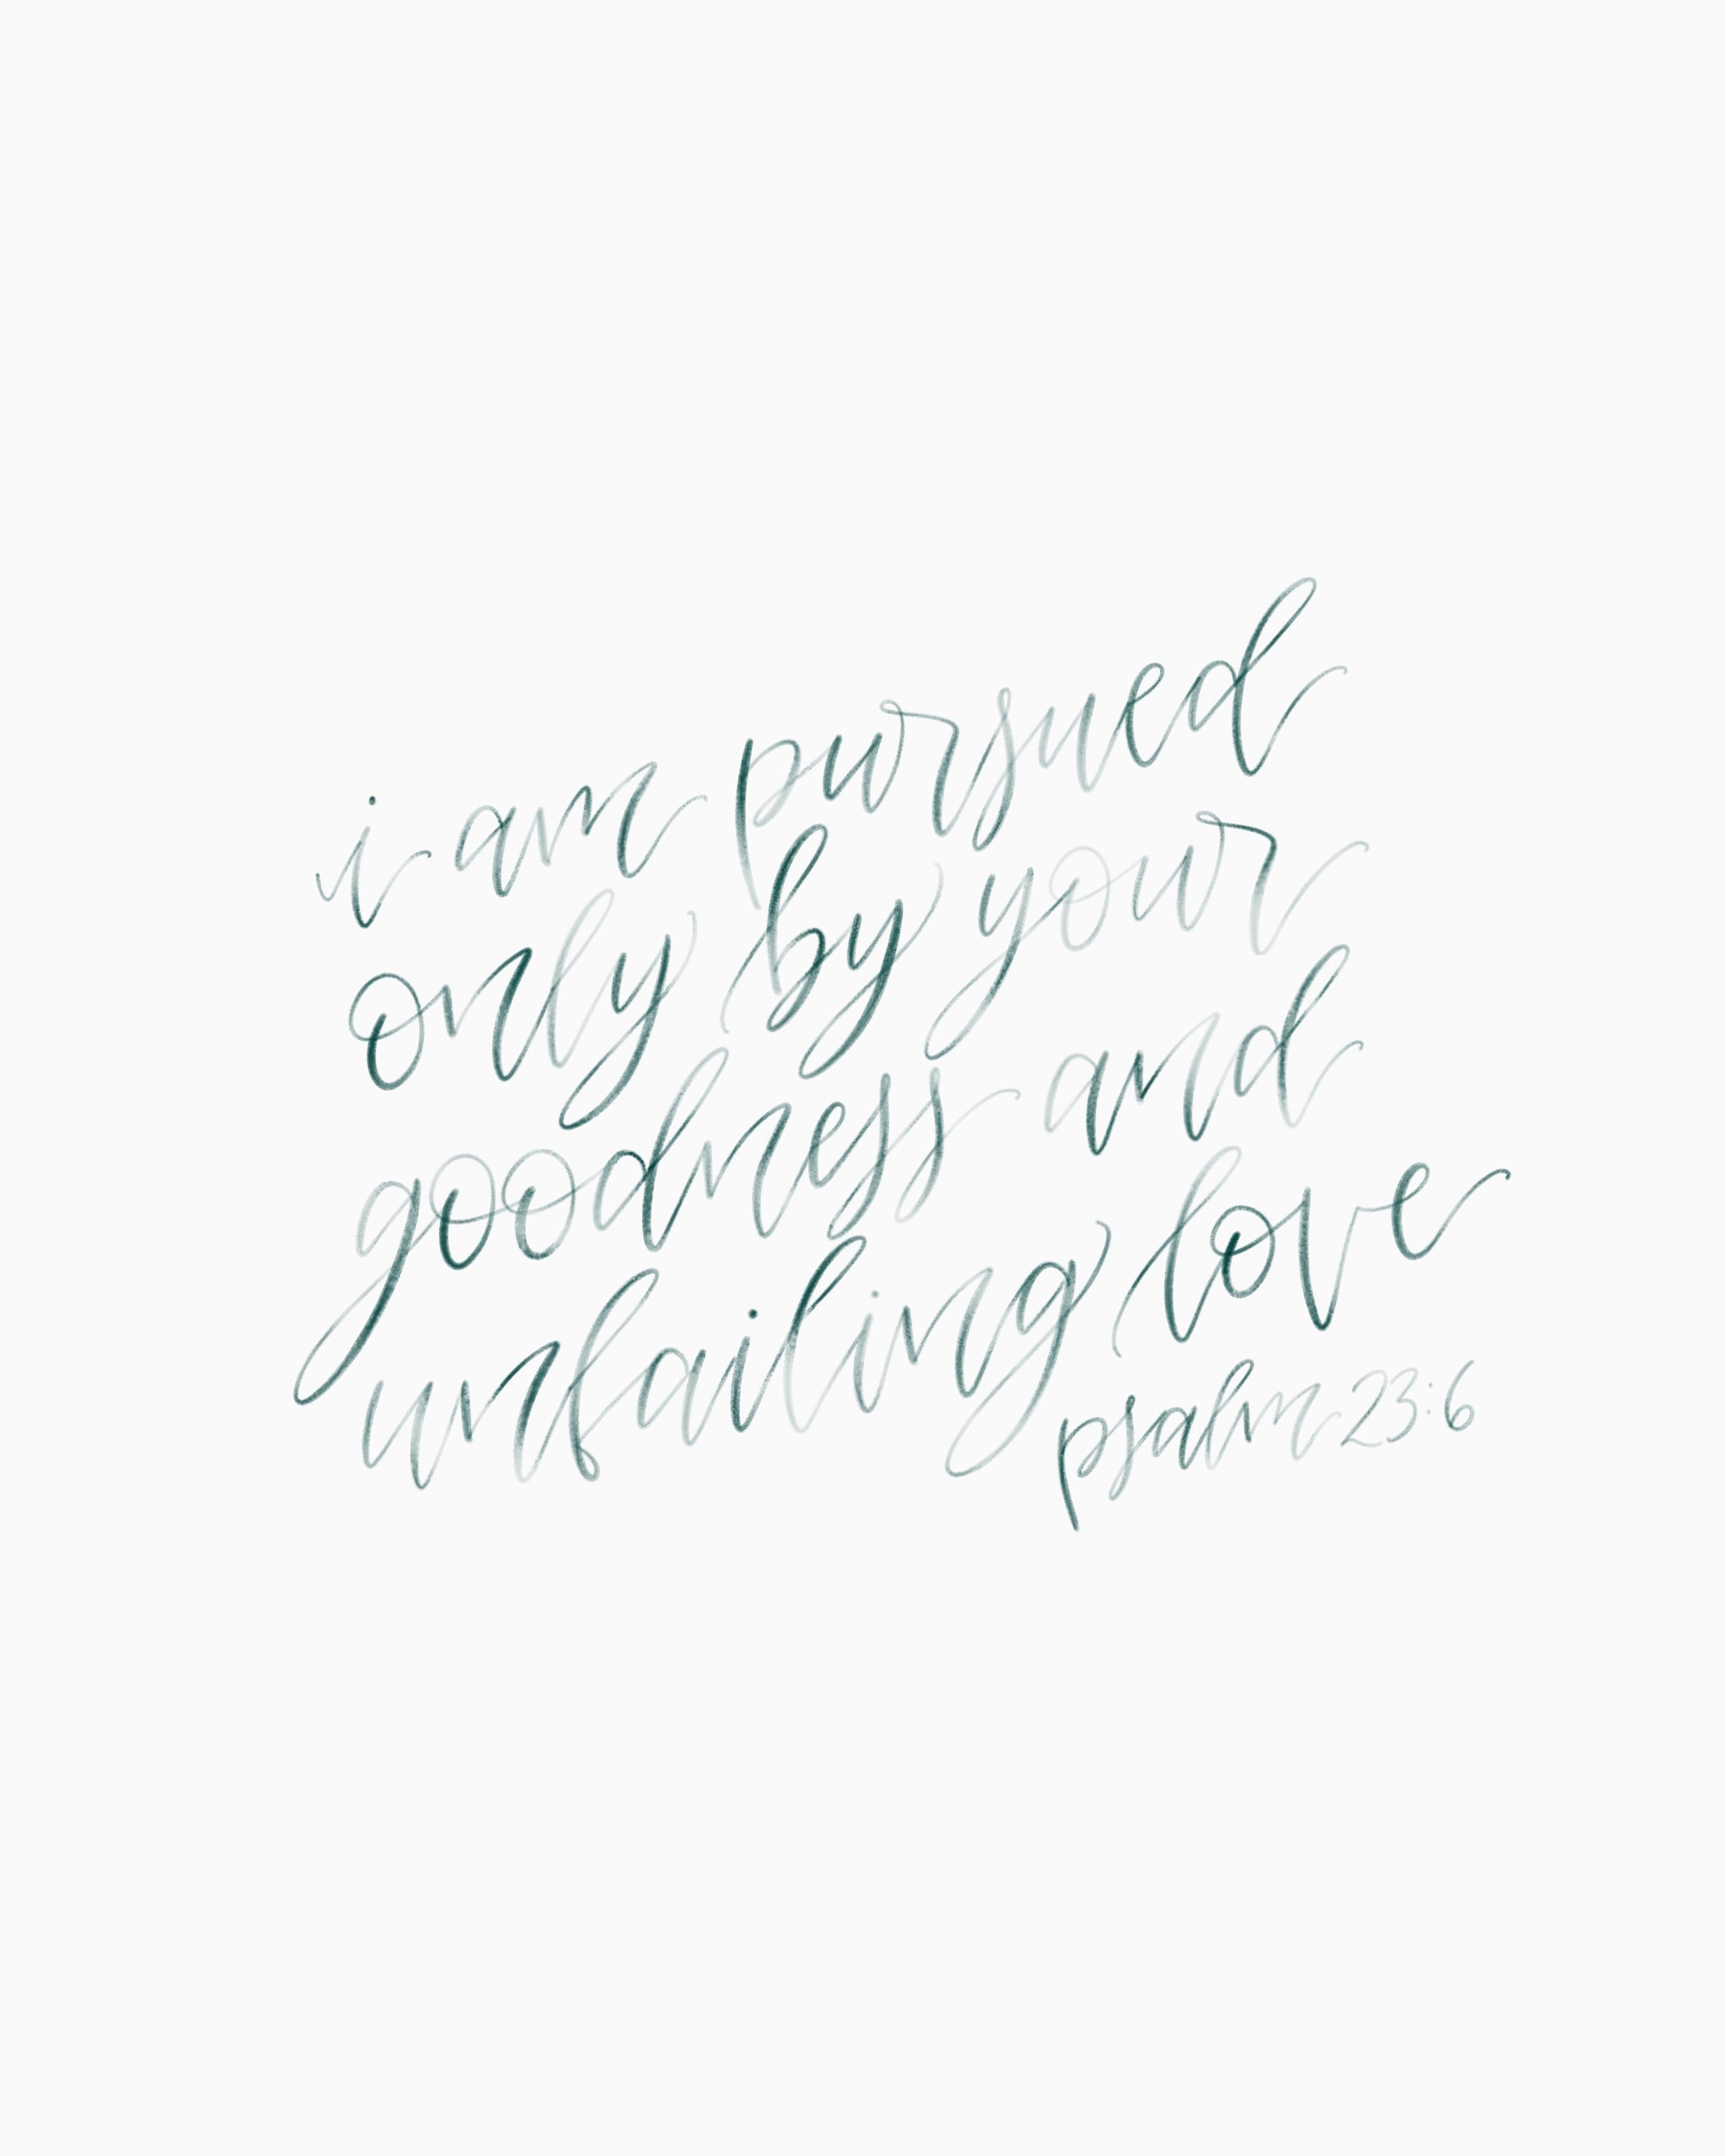 i am pursued
only by your
goodness and
unfailing love
psalm 23:6